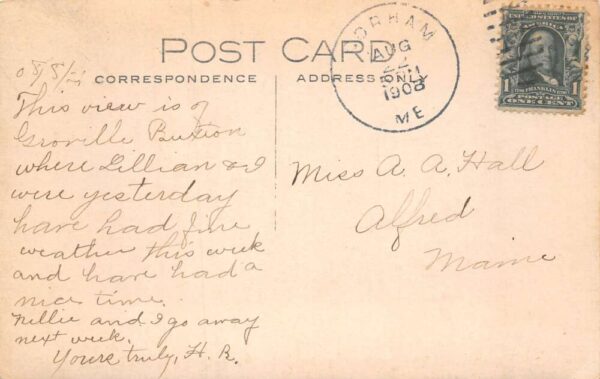 POST CARD
CORRESPONDENCE
ADDRESS ONLY
GORHAM
AUG
22
1908
ME
UNITED STATES OF AMERICA
FRANKLIN
1 POSTAGE 1
ONE CENT
This view is of
Groville Buxton
where Lillian & I
were yesterday
have had fine
weather this week
and have had a
nice time.
Nellie and I go away
next week.
Yours truly, H. R.
Miss A. A. Hall
Alfred
Maine